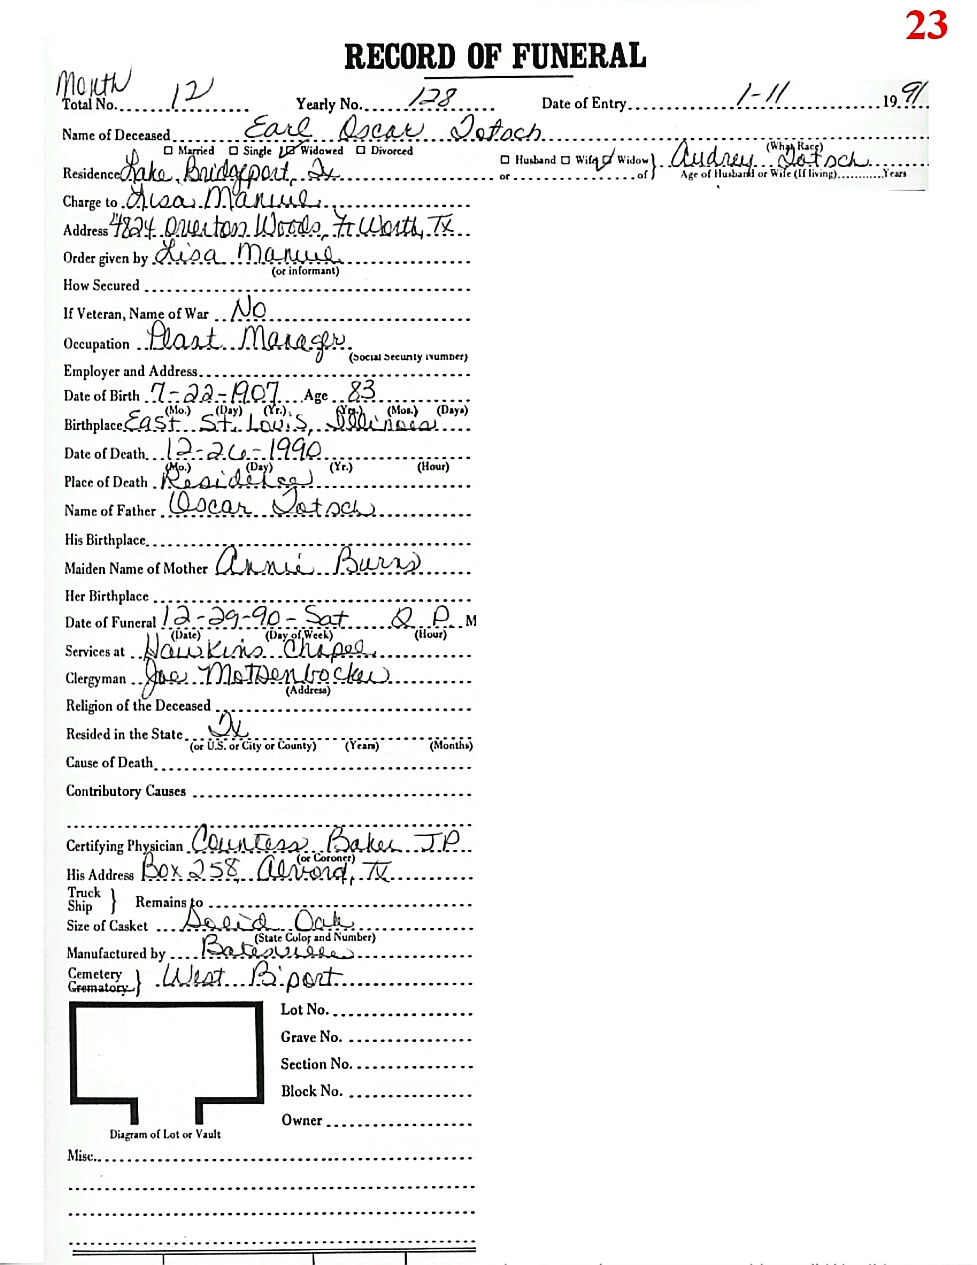 23
RECORD OF FUNERAL
Month
Total No. 12 Yearly No. 128 Date of Entry 1-11 1991
Name of Deceased Earl Oscar Totsch
☐ Married ☐ Single ☑ Widowed ☐ Divorced (What Race)
Residence Lake Bridgeport, Tx ☐ Husband ☐ Wife ☑ Widow } Audrey Totsch
or of } Age of Husband or Wife (If living) Years
Charge to Lisa Manue
Address 4824 Overton Woods, Ft Worth, Tx
Order given by Lisa Manue
(or informant)
How Secured
If Veteran, Name of War No
Occupation Plant Manager
(Social Security Number)
Employer and Address
Date of Birth 7-22-1907 Age 83
(Mo.) (Day) (Yr.) (Yrs.) (Mos.) (Days)
Birthplace East St. Louis, Illinois
Date of Death 12-26-1990
(Mo.) (Day) (Yr.) (Hour)
Place of Death Residence
Name of Father Oscar Totsch
His Birthplace
Maiden Name of Mother Annie Burns
Her Birthplace
Date of Funeral 12-29-90-Sat 2 P M
(Date) (Day of Week) (Hour)
Services at Hawkins Chapel
Clergyman Joe Motsenbocker
(Address)
Religion of the Deceased
Resided in the State Tx
(or U.S. or City or County) (Years) (Months)
Cause of Death
Contributory Causes
Certifying Physician Countess Baker JP
(or Coroner)
His Address Box 258, Alvord, Tx
Truck
Ship } Remains to
Size of Casket Solid Oak
(State Color and Number)
Manufactured by Batesville
Cemetery
Crematory } West B'port
Lot No.
Grave No.
Section No.
Block No.
Owner
Diagram of Lot or Vault
Misc.